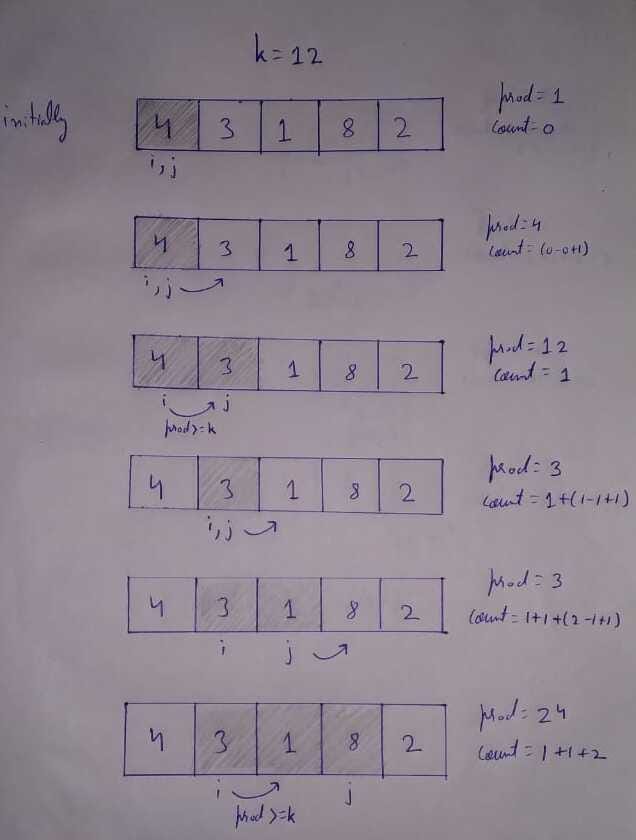 k = 12
initially
4 3 1 8 2
i, j
prod = 1
count = 0
4 3 1 8 2
i, j
prod = 4
count = (0-0+1)
4 3 1 8 2
i j
prod >= k
prod = 12
count = 1
4 3 1 8 2
i, j
prod = 3
count = 1+(1-1+1)
4 3 1 8 2
i j
prod = 3
count = 1+1+(2-1+1)
4 3 1 8 2
i j
prod >= k
prod = 24
count = 1+1+2